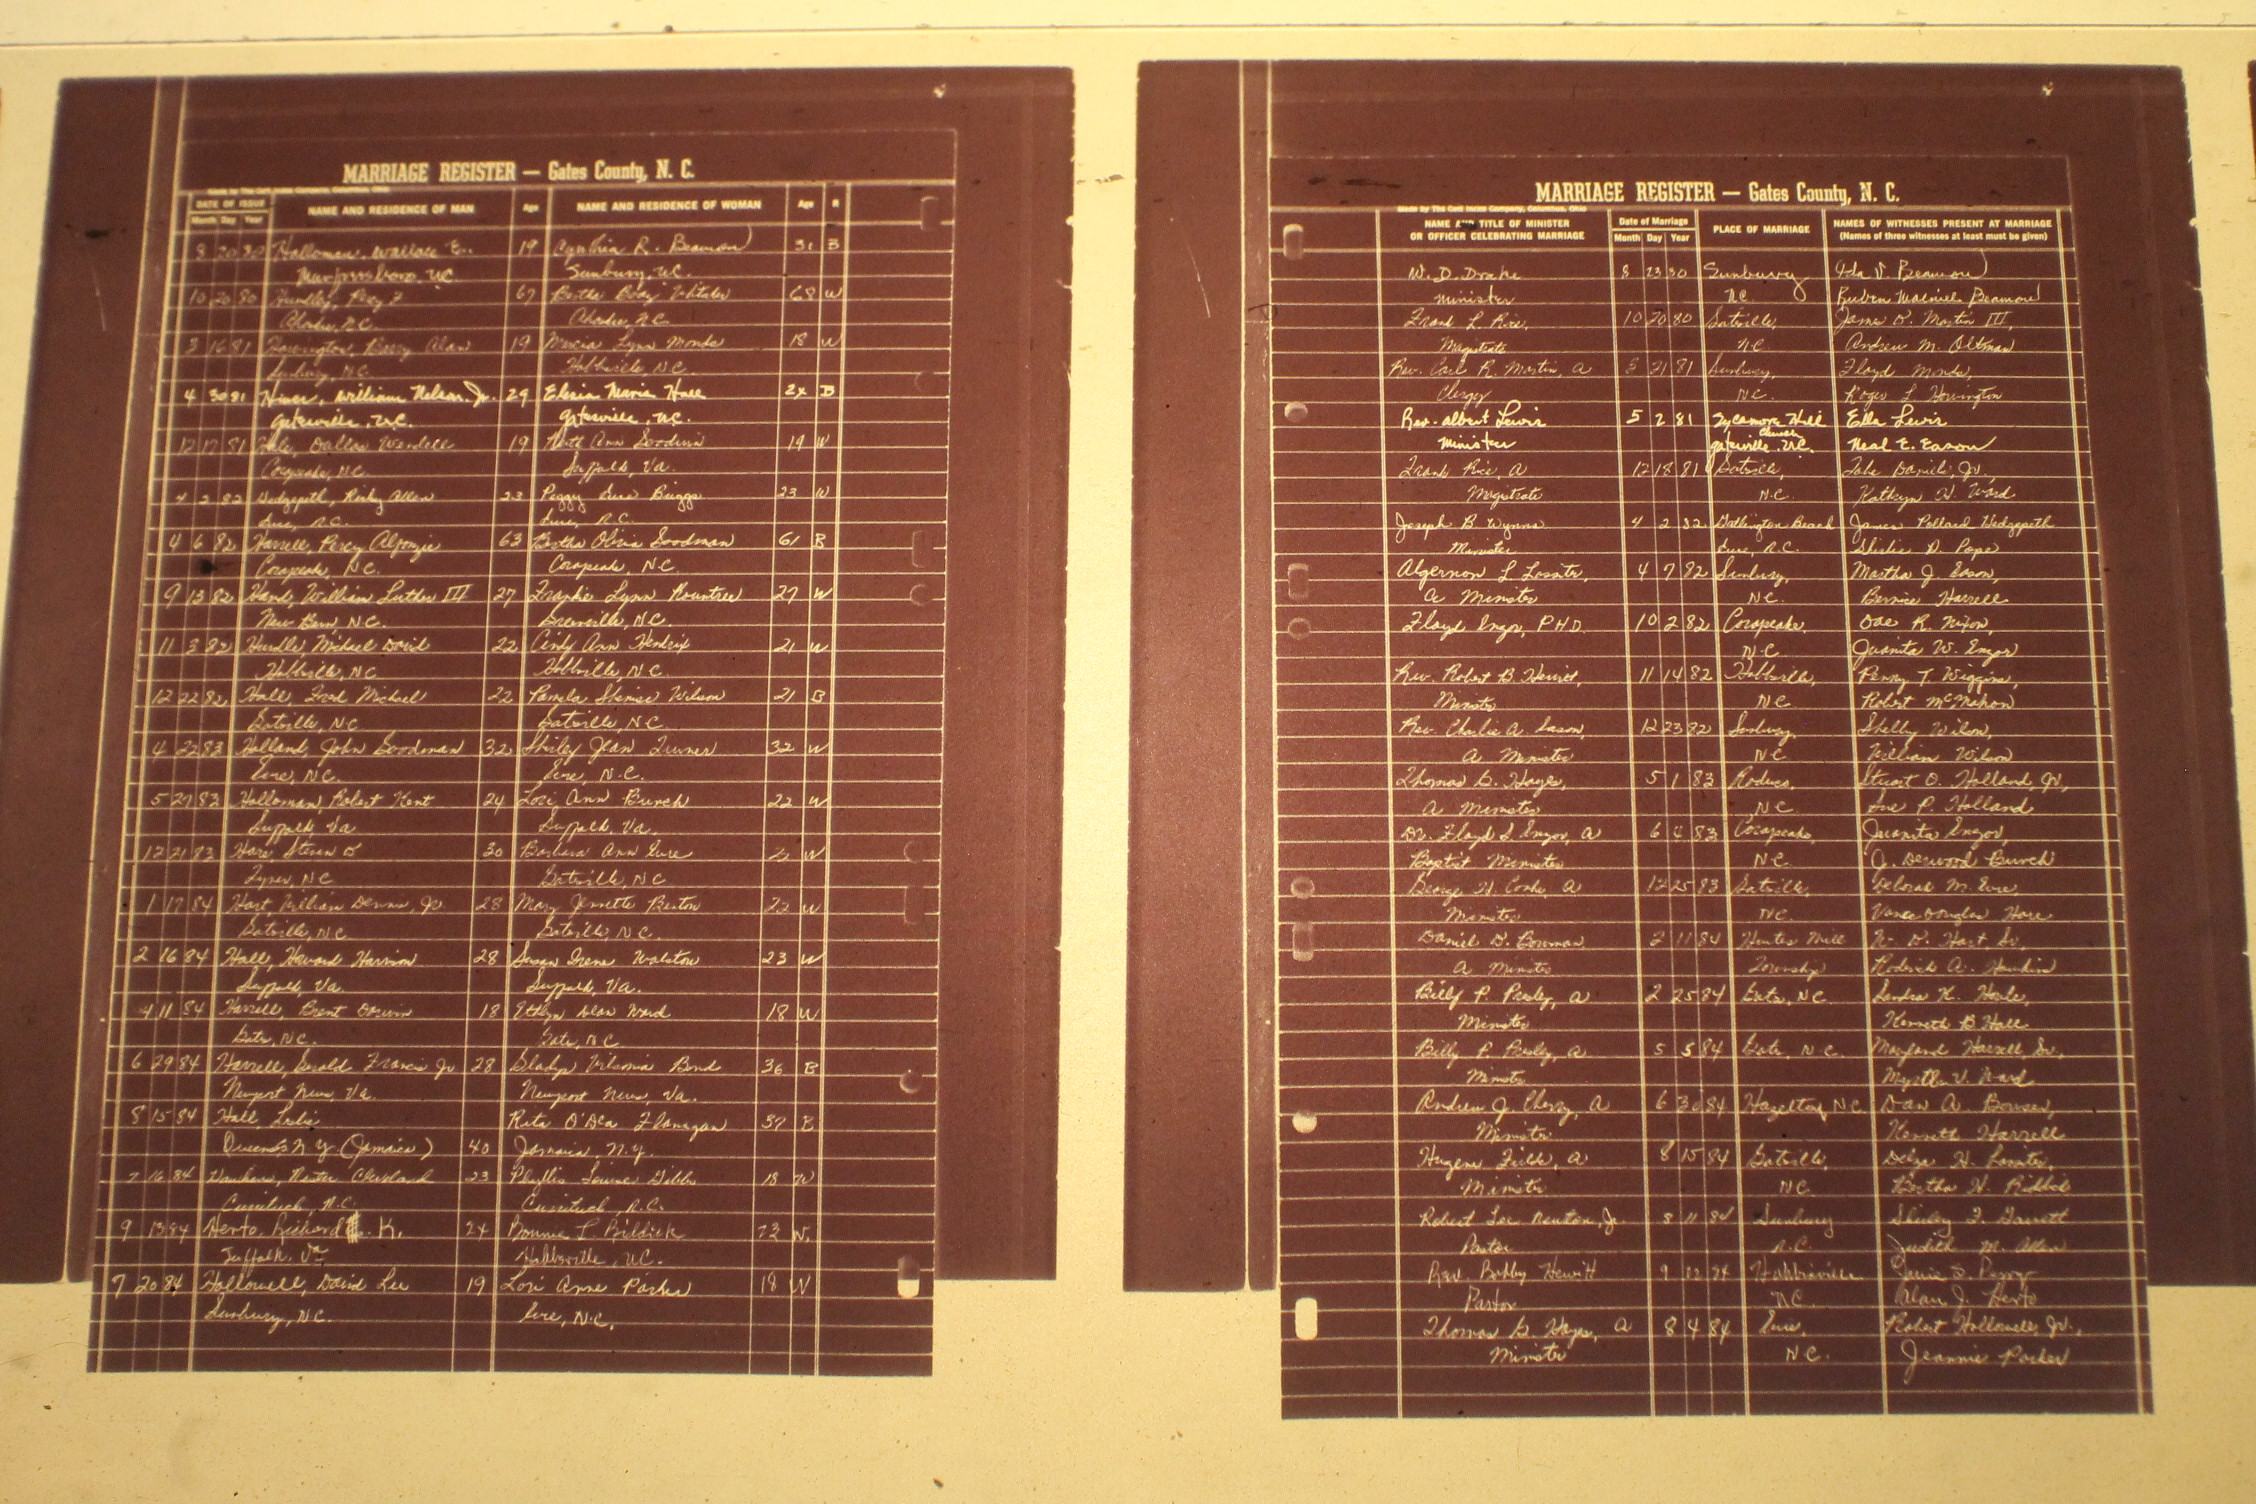 MARRIAGE REGISTER — Gates County, N. C.
DATE OF ISSUE
Month Day Year
NAME AND RESIDENCE OF MAN
Age
NAME AND RESIDENCE OF WOMAN
Age
R
8 20 80 Holloman, Wallace E. 19 Cynthia R. Beamon 31 B
Murfreesboro, NC Sunbury, NC.
10 20 80 Percy 67 Bertha 68 W
3 16 81 Barry Alan 19 Lynn 18 W
Sunbury, NC Hobbsville, NC
4 30 81 William Nelson, Jr. 29 Marie Hall 24 B
Gatesville, N.C. Gatesville, N.C.
12 17 81 Hale, Dallas Wendell 19 Ann Goodwin 19 W
Corapeake, N.C. Suffolk, Va.
4 2 82 Hedgepeth, Ricky Allen 23 Peggy Sue Briggs 23 W
Eure, N.C. Eure, N.C.
4 6 82 Harrell, Percy 63 Bertha Olivia Goodman 61 B
Corapeake, N.C. Corapeake, N.C.
9 13 82 Hand, William Luther III 27 Frankie Lynn Rountree 27 W
New Bern, N.C. Greenville, N.C.
11 3 82 Hurdle, Michael David 22 Cindy Ann Hendrix 21 W
Hobbsville, NC Hobbsville, N.C.
12 22 82 Hall, Fred Michael 22 Pamela Wilson 21 B
Gatesville, NC Gatesville, N.C.
4 22 83 Holland, John Goodman 32 Shirley Jean Turner 32 W
Eure, N.C. Eure, N.C.
5 27 83 Holloman, Robert Kent 24 Lori Ann Burch 22 W
Suffolk, Va Suffolk, Va.
12 21 83 Hare Steven D 30 Barbara Ann Eure W
Tyner, NC Gatesville, NC
1 17 84 Hart, William Dennis, Jr 28 Mary Jennette Benton 22 W
Gatesville, NC Gatesville, N.C.
2 16 84 Hall, Howard Harrison 28 Susan Irene Walston 23 W
Suffolk, Va. Suffolk, Va.
4 11 84 Harrell, Brent 18 Dean Ward 18 W
Gates, N.C. Gates, N.C.
6 29 84 Harrell, Gerald Francis Jr 28 Gladys Bond 36 B
Newport News, Va. Newport News, Va.
8 15 84 Hall Leslie Rita O'Dea Flanagan 37 B
Queens N Y (Jamaica) 40 Jamaica, N.Y.
7 16 84 Cleveland 23 Phyllis Louise Gibbs 18 W
Currituck, N.C. Currituck, N.C.
9 13 84 Herto, Richard K. 24 Bonnie L. Biddick 23 W.
Suffolk, Va Hobbsville, N.C.
7 20 84 Hollowell, David Lee 19 Lori Anne Parker 18 W
Sunbury, N.C. Eure, N.C.
MARRIAGE REGISTER — Gates County, N. C.
Made by The Cott Index Company, Columbus, Ohio
NAME AND TITLE OF MINISTER
OR OFFICER CELEBRATING MARRIAGE
Date of Marriage
Month Day Year
PLACE OF MARRIAGE
NAMES OF WITNESSES PRESENT AT MARRIAGE
(Names of three witnesses at least must be given)
W. D. Drake 8 23 80 Sunbury Ida V. Beamon
Minister N.C. Ruben Beamon
Frank L. Rice, 10 20 80 Gatesville, James D. Martin III,
Magistrate N.C. Andrew M. Oltman
Rev. Carl R. Martin, A 3 21 81 Sunbury, Floyd
Clergy N.C. Roger L.
Rev. Albert Lewis 5 2 81 Sycamore Hill Ella Lewis
Church
Minister Gatesville, N.C. Neal E. Eason
Frank Rice, A 12 18 81 Gatesville, Daniels, Jr.,
Magistrate N.C. Kathryn H. Ward
Joseph B. Wynns 4 2 82 Beach James Pollard Hedgepeth
Minister Eure, N.C. D. Pope
Algernon L Lassiter, 4 7 82 Sunbury, Martha J. Eason,
A Minister N.C. Bernice Harrell
Floyd Enzor, P.H.D. 10 2 82 Corapeake, R. Nixon,
N.C. Juanita W. Enzor
Rev. Robert B. Hewitt, 11 14 82 Hobbsville, Penny T. Wiggins,
Minister N.C. Robert McMahon
Rev. Charlie A. Eason, 12 23 82 Sunbury, Shelby Wilson,
A Minister N.C. William Wilson
Thomas G. Hayes, 5 1 83 Roduco, Stuart O. Holland, Jr,
A Minister N.C. Sue P. Holland
Dr. Floyd S. Enzor, A 6 4 83 Corapeake, Juanita Enzor,
Baptist Minister N.C. J. Derwood Burch
George H. Cooke, A 12 25 83 Gatesville, Deborah M. Eure,
Minister N.C. Vance Douglas Hare
Daniel D. Bowman, 2 11 84 Hunters Mill W. D. Hart Sr.,
A Minister Township Roderick A. Hawkins
Billy P. Presley, A 2 25 84 Gates, N.C. Sandra K.
Minister Kenneth B. Hall
Billy P. Presley, A 5 5 84 Gates, N.C. Harrell Sr.,
Minister Myrtle V. Ward
Andrew J. Cherry, A 6 30 84 Hazelton, N.C. Dan A.
Minister Kenneth Harrell
A 8 15 84 Gatesville, H. Lassiter,
Minister N.C. Bertha H. Riddick
Robert Lee Newton, Jr. 8 11 84 Sunbury Shirley F. Garrett
Pastor N.C. Judith M. Allen
Rev. Bobby Hewitt 9 22 84 Hobbsville Janie S. Perry
Pastor N.C. Alan J. Herto
Thomas G. Hayes, A 8 4 84 Eure, Robert Hollowell, Jr.,
Minister N.C. Jeannie Parker